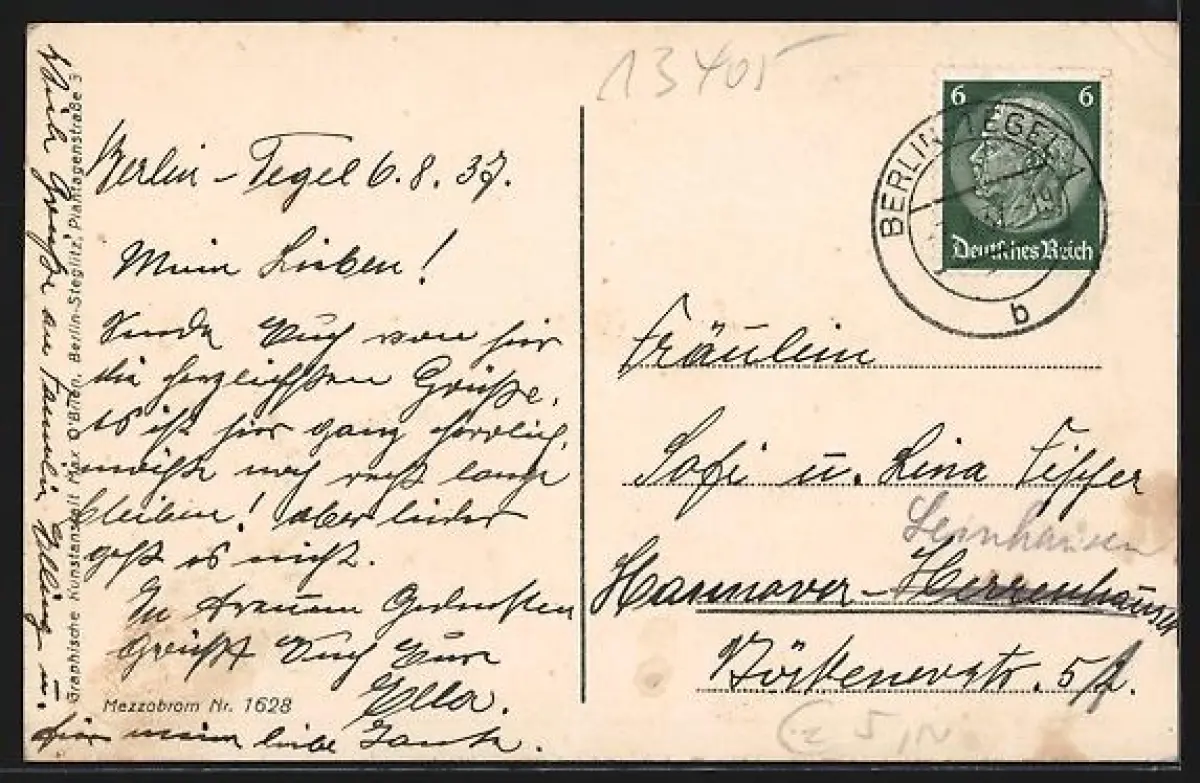 13405
Berlin-Tegel 6.8.37.
Meine Lieben!
Sende Euch von hier
die herzlichsten Grüße.
Es ist hier ganz herrlich,
möchte noch recht lange
bleiben! aber leider
geht es nicht.
In treuem Gedenken
grüßt Euch Eure
Ella.
Viele Grüße an Familie Elling u.
für meine liebe Tante.
Graphische Kunstanstalt Max O'Brien, Berlin-Steglitz, Plantagenstraße 3
Mezzobrom Nr. 1628
6 6
Deutsches Reich
BERLIN-TEGEL 1
-19
b
Fräulein
Sofi u. Lina
Leinhausen
Hannover-Herrenhausen
5
5